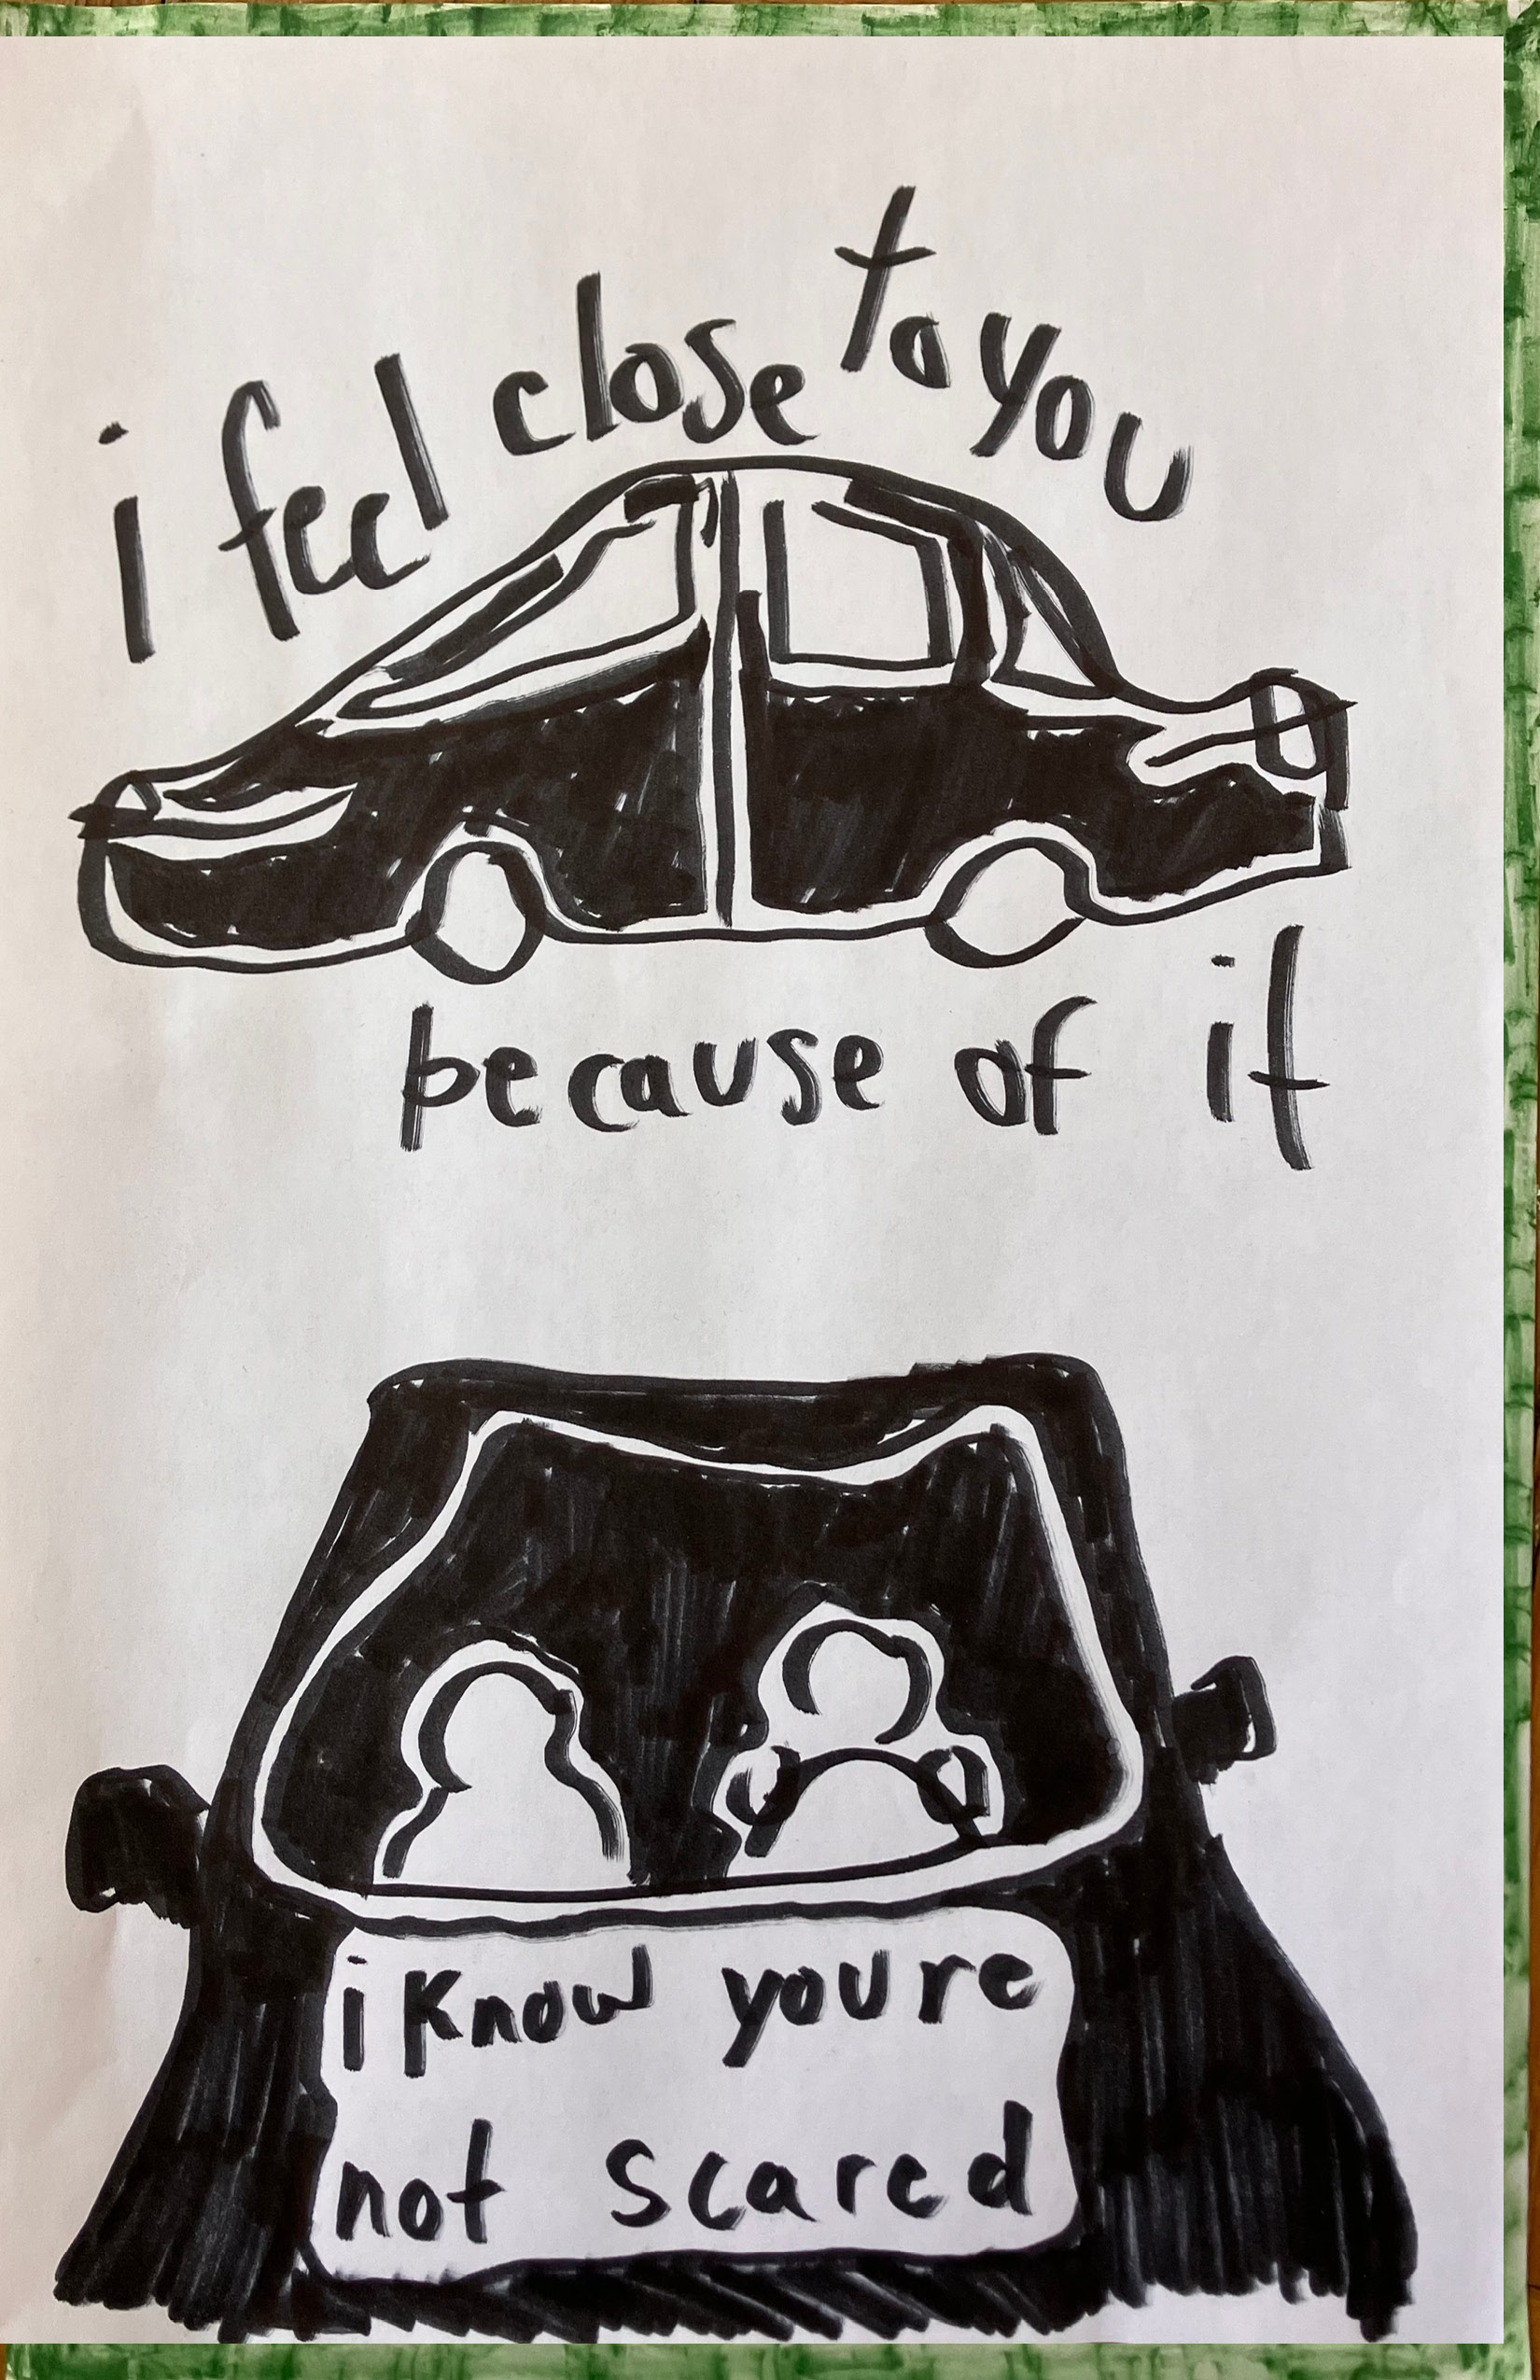 i feel close to you
because of it
i know youre
not scared